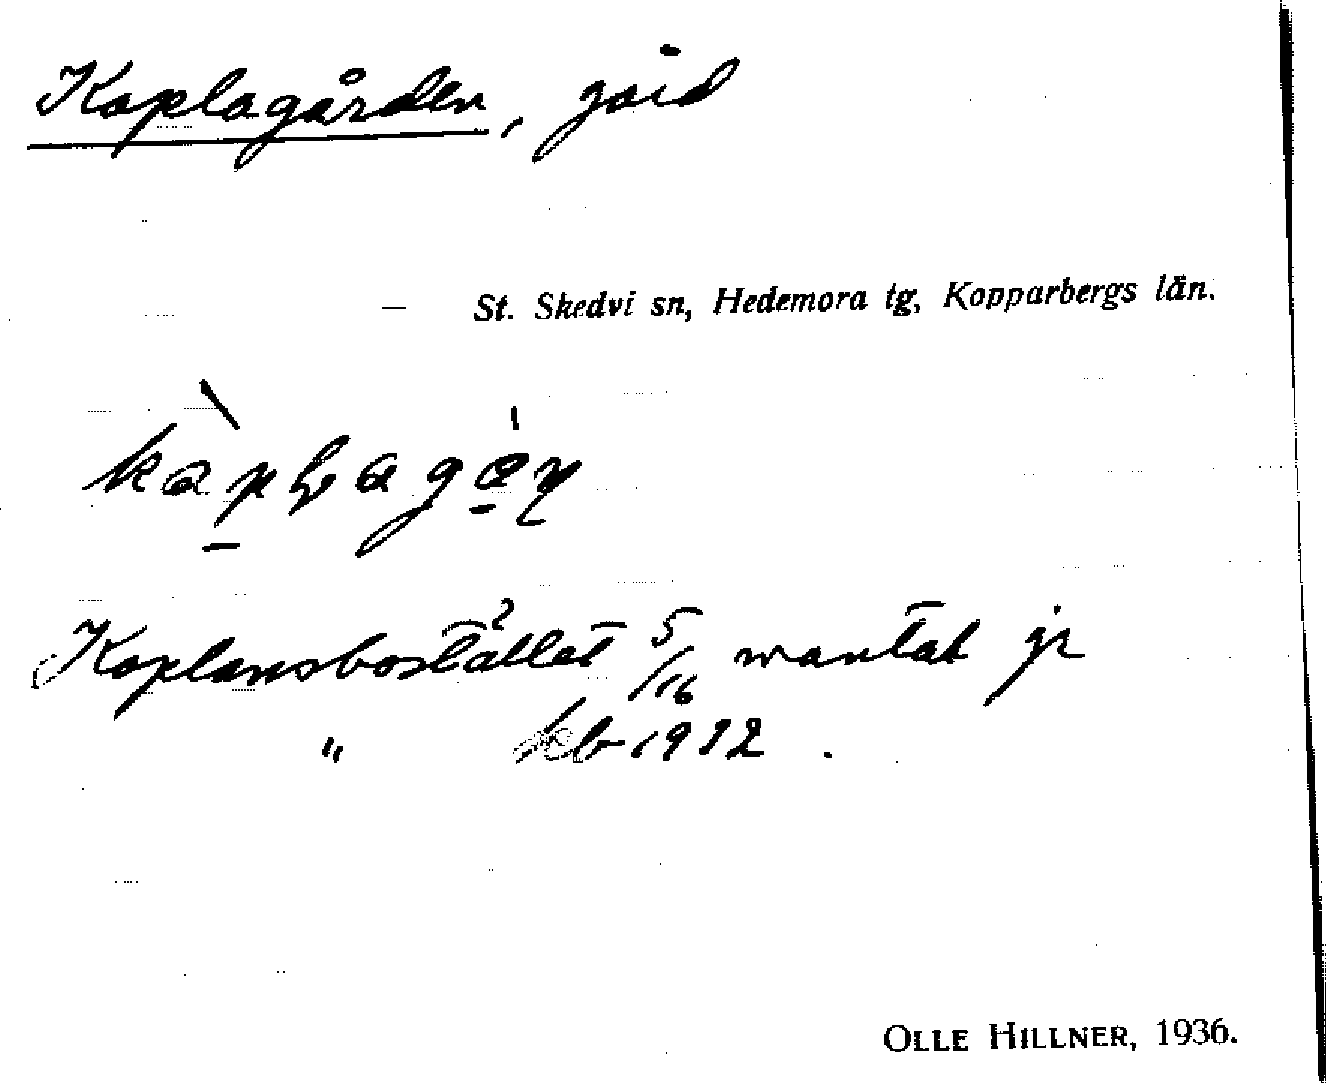 Kaplagården, jord
— St. Skedvi sn, Hedemora tg, Kopparbergs län.
Kaplansbostället 5/16 mantal jr
" kb 1932.
OLLE HILLNER, 1936.